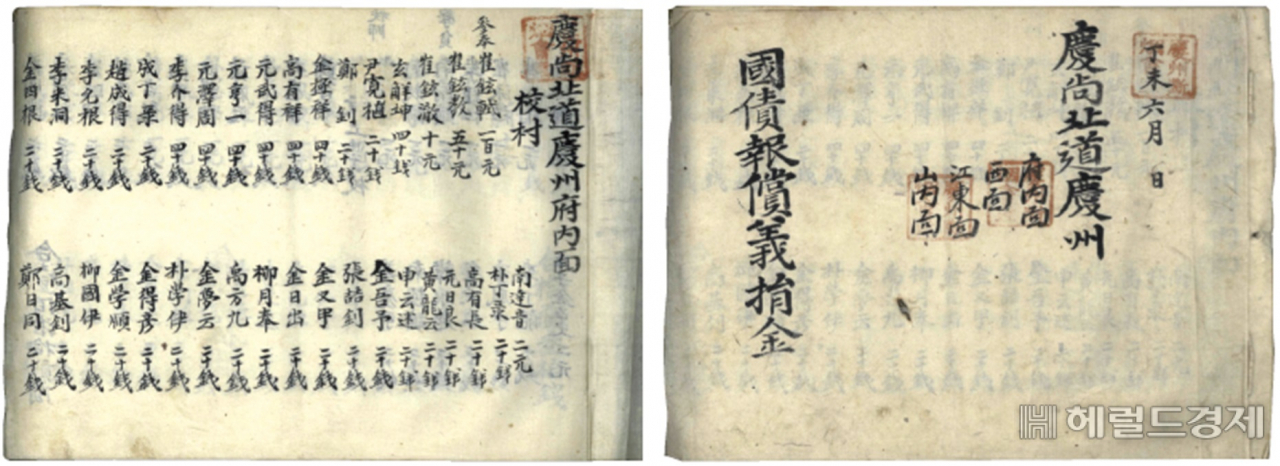 慶尙北道慶州府内面
校村
參奉 崔鉉軾 一百元
崔鉉敎 五十元
崔鉉澈 十元
玄觧坤 四十錢
尹寬植 二十錢
鄭釗 二十錢
金極祥 四十錢
高有祥 四十錢
元武得 四十錢
元亨一 四十錢
元澤周 四十錢
李春得 四十錢
成丁栗 二十錢
趙成得 二十錢
李元根 二十錢
李末洞 二十錢
金四根 二十錢
南達音 二元
朴丁录 二十錢
高有長 二十錢
元日良 二十錢
黃龍云 二十錢
申云述 二十錢
金吾乎 二十錢
張喆釗 二十錢
金又甲 二十錢
金日出 二十錢
柳月奉 二十錢
高万九 二十錢
金夢云 二十錢
朴学伊 二十錢
金得彦 二十錢
金学順 二十錢
柳國伊 二十錢
高基釗 二十錢
鄭日同 二十錢
丁未六月 日
慶尙北道慶州
府内面
西面
江東面
山内面
國債報償義捐金
헤럴드경제